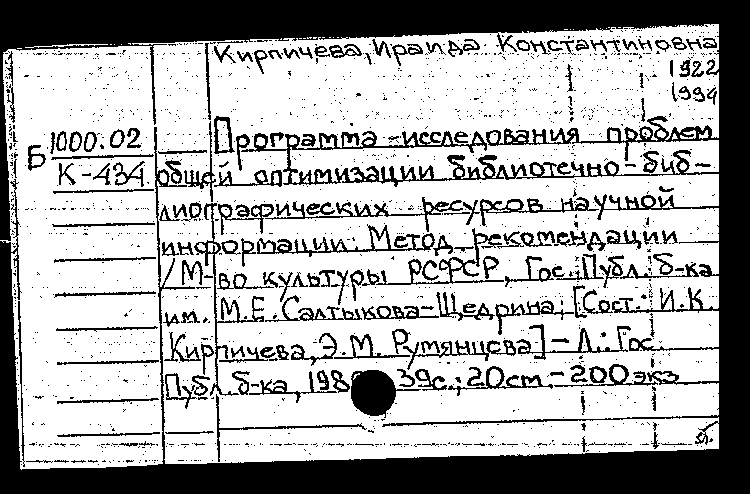 Кирпичева, Ираида Константиновна
1922
1994
Б 1000.02
К-434
Программа-исследования проблем
общей оптимизации библиотечно-биб-
лиографических ресурсов научной
информации: Метод. рекомендации
/М-во культуры РСФСР, Гос. Публ. б-ка
им. М.Е. Салтыкова-Щедрина; [Сост.: И.К.
Кирпичева, Э.М. Румянцева] - Л.: Гос.
Публ. б-ка, 39с.; 20см. - 200экз